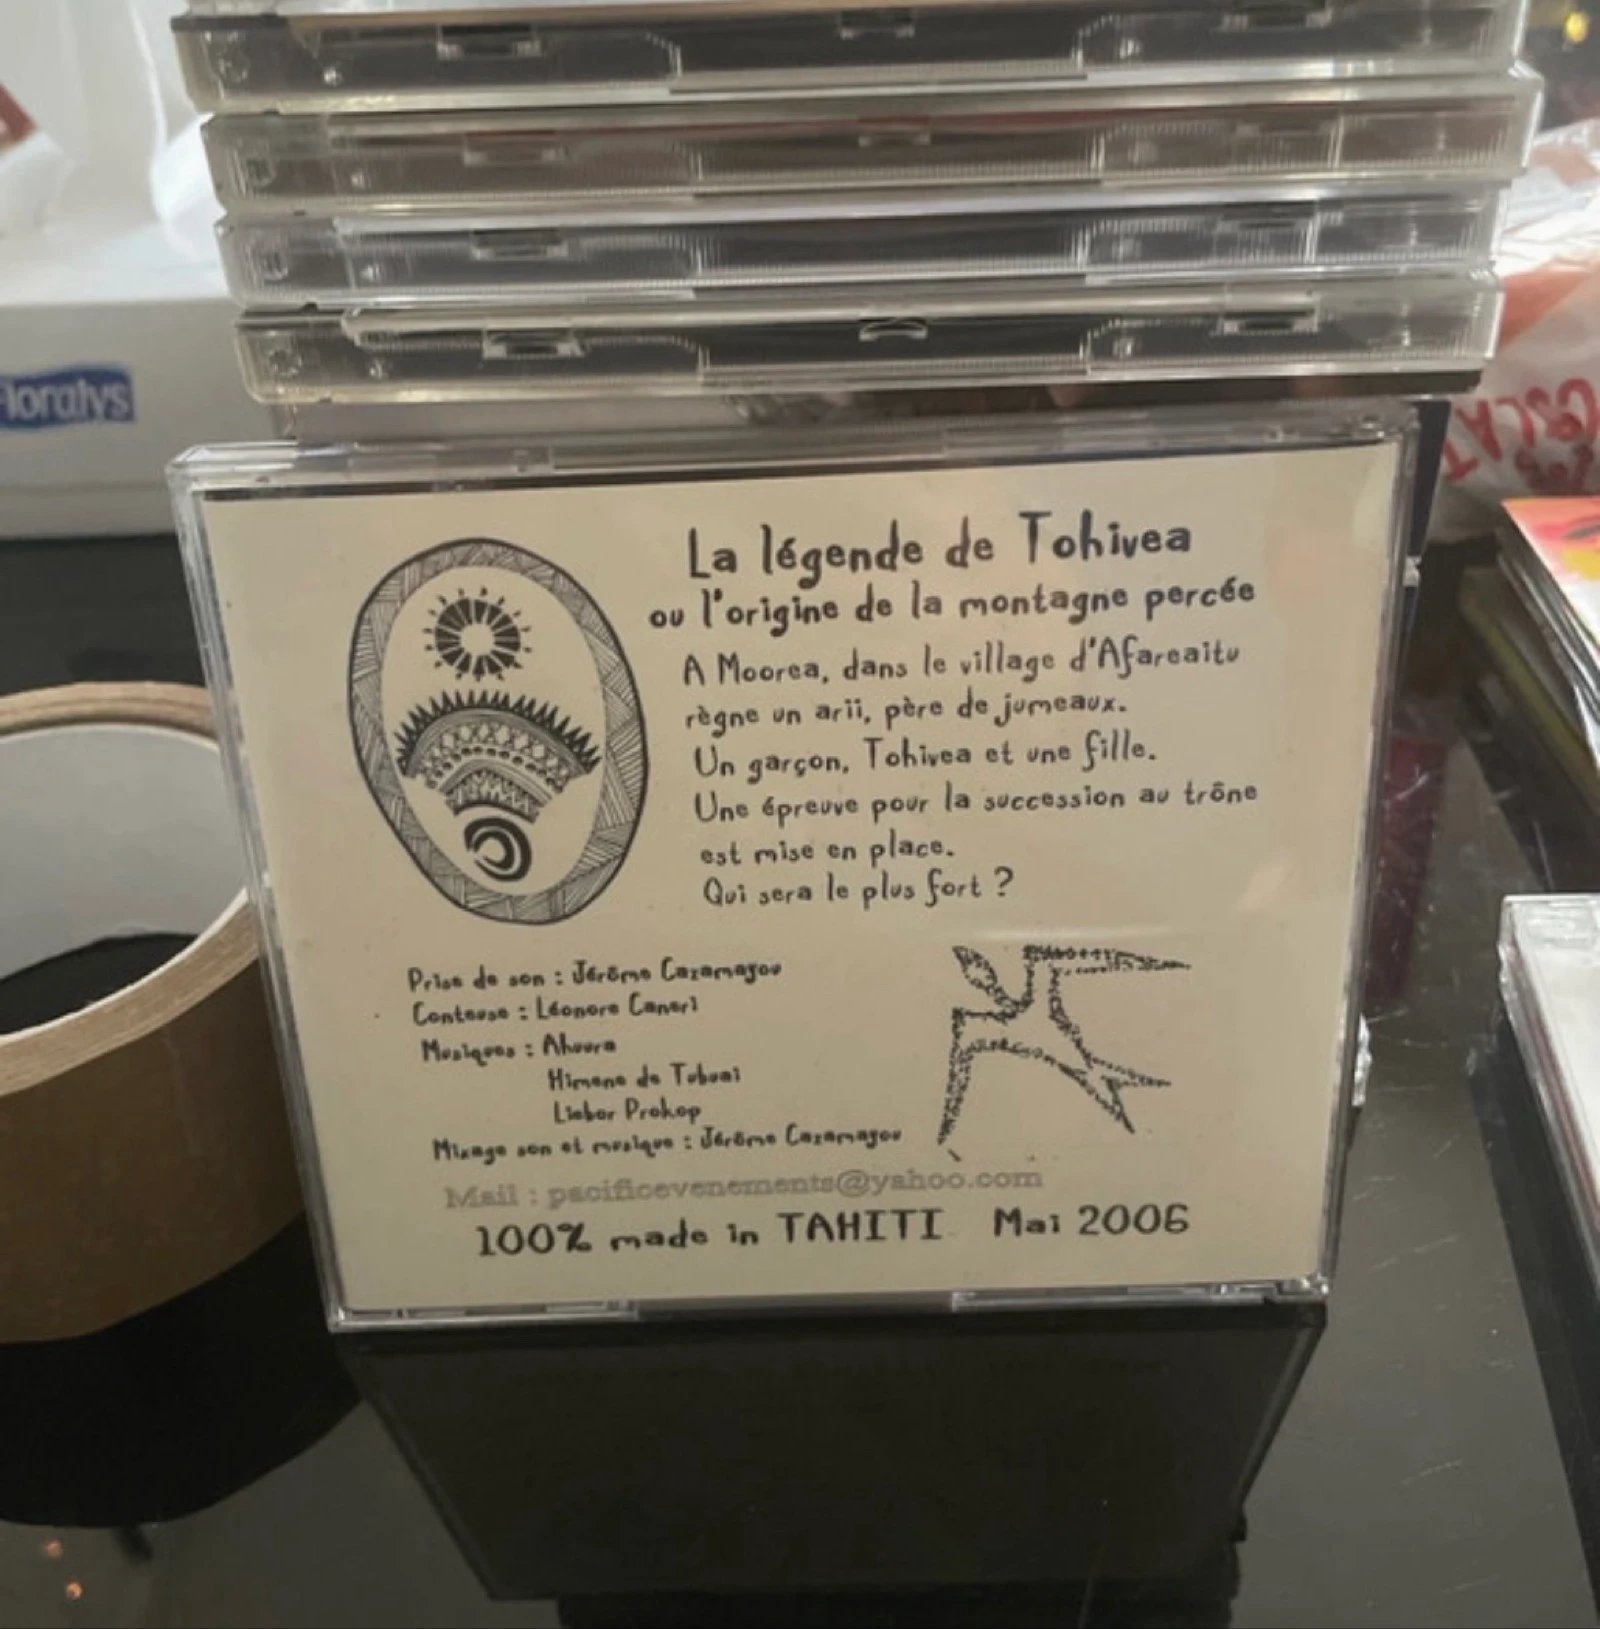 Floralys
La légende de Tohivea
ou l'origine de la montagne percée
A Moorea, dans le village d'Afareaitu
règne un arii, père de jumeaux.
Un garçon, Tohivea et une fille.
Une épreuve pour la succession au trône
est mise en place.
Qui sera le plus fort ?
Prise de son : Jérôme Cazamayou
Conteuse : Léonore Caneri
Musiques : Ahuura
Himene de Tubuai
Liebor Prokop
Mixage son et musique : Jérôme Cazamayou
Mail : pacificevenements@yahoo.com
100% made in TAHITI Mai 2006